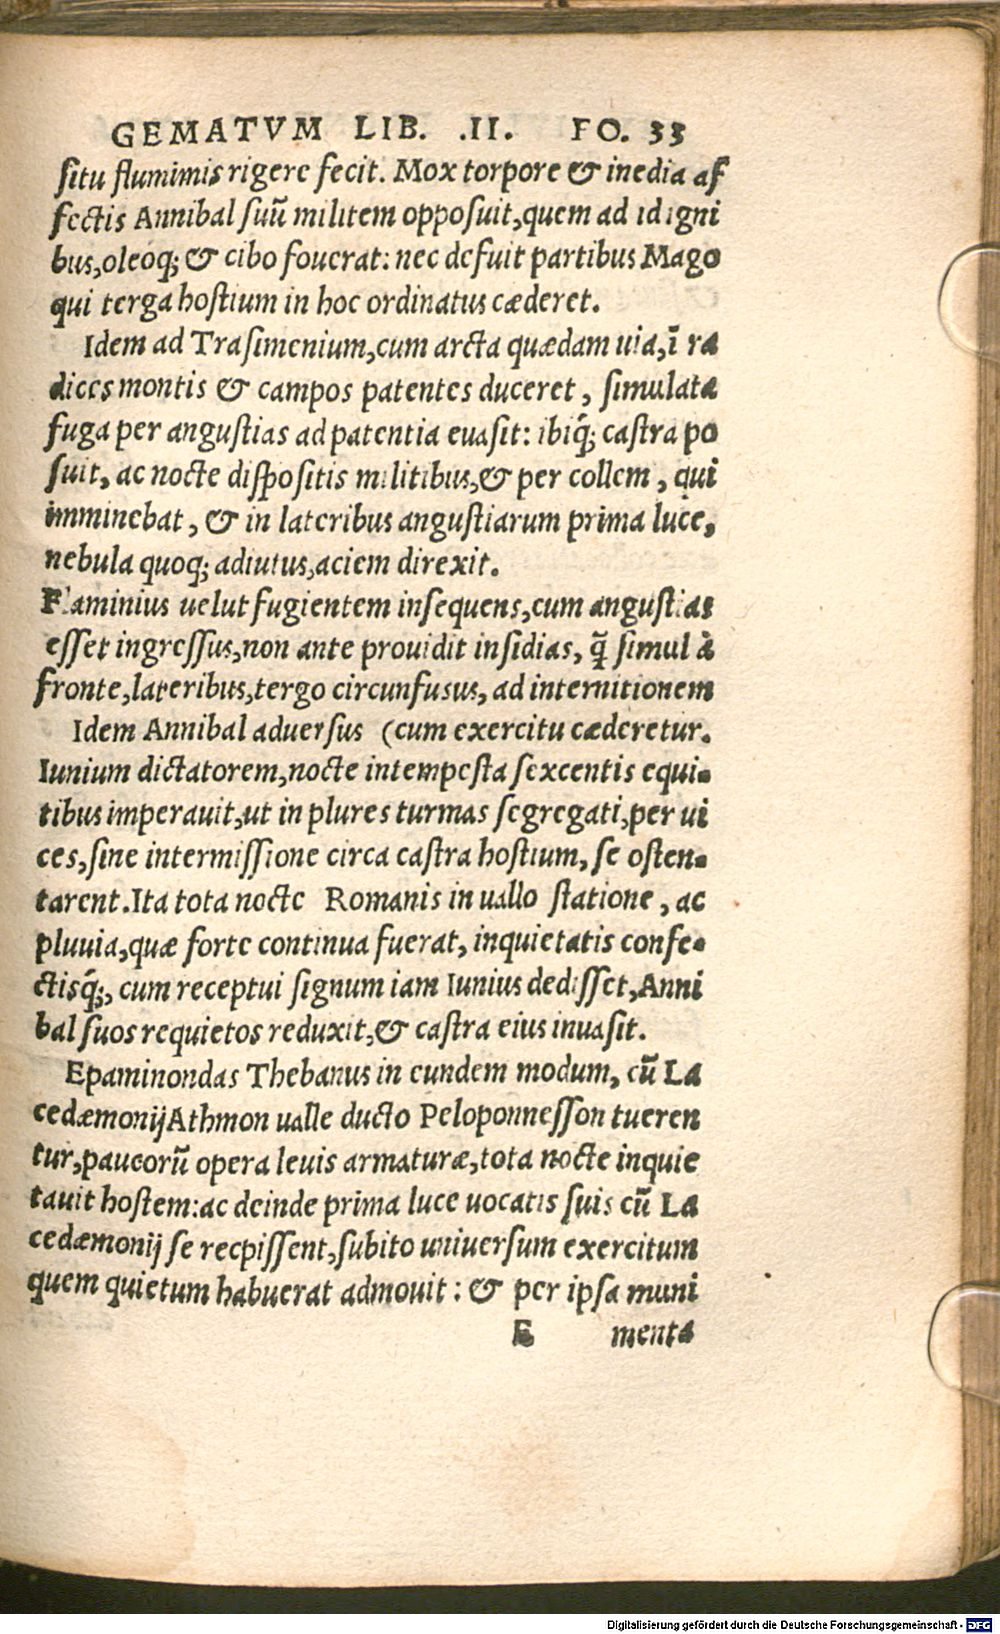 GEMATVM LIB. .II. FO. 33
ſitu flumimis rigere fecit. Mox torpore & inedia af
fectis Annibal ſuū militem oppoſuit,quem ad id igni
bus,oleoq́; & cibo fouerat: nec defuit partibus Mago
qui terga hoſtium in hoc ordinatus cæderet.
Idem ad Traſimenium,cum arcta quædam uia,ī ra
dices montis & campos patentes duceret, ſimulata
fuga per anguſtias ad patentia euaſit: ibiq́; caſtra po
ſuit, ac nocte diſpoſitis militibus,& per collem, qui
imminebat, & in lateribus anguſtiarum prima luce,
nebula quoq; adiutus,aciem direxit.
Flaminius uelut fugientem inſequens,cum anguſtias
eſſet ingreſſus,non ante prouidit inſidias, q̃ ſimul à
fronte,lateribus,tergo circunfusus, ad internitionem
Idem Annibal aduerſus (cum exercitu cæderetur.
Iunium dictatorem,nocte intempeſta ſexcentis equi-
tibus imperauit,ut in plures turmas ſegregati,per ui
ces,ſine intermiſſione circa caſtra hoſtium, ſe oſten-
tarent.Ita tota nocte Romanis in uallo ſtatione, ac
pluuia,quæ forte continua fuerat, inquietatis confe-
ctisq́;, cum receptui ſignum iam Iunius dediſſet,Anni
bal ſuos requietos reduxit,& caſtra eius inuaſit.
Epaminondas Thebanus in eundem modum, cū La
cedæmonij Athmon ualle ducto Peloponneſſon tueren
tur,paucorū opera leuis armaturæ,tota nocte inquie
tauit hoſtem:ac deinde prima luce uocatis ſuis cū La
cedæmonij ſe recpiſſent,ſubito uniuerſum exercitum
quem quietum habuerat admouit: & per ipſa muni
E menta
Digitalisierung gefördert durch die Deutsche Forschungsgemeinschaft - DFG